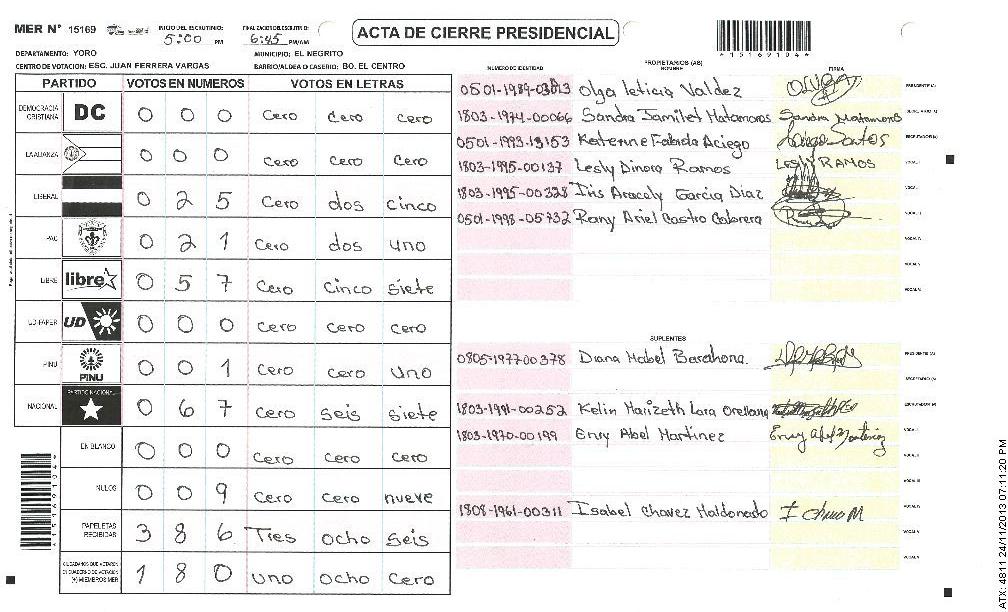 MER N° 15169
INICIO DEL ESCRUTINIO: 5:00 PM
FINALIZACION DEL ESCRUTINIO: 6:45 PM/AM
ACTA DE CIERRE PRESIDENCIAL
*15169104*
DEPARTAMENTO: YORO
MUNICIPIO: EL NEGRITO
CENTRO DE VOTACION: ESC. JUAN FERRERA VARGAS
BARRIO/ALDEA O CASERIO: BO. EL CENTRO
PARTIDO VOTOS EN NUMEROS VOTOS EN LETRAS
DEMOCRACIA CRISTIANA DC 0 0 0 cero cero cero
LA ALIANZA 0 0 0 cero cero cero
LIBERAL 0 2 5 Cero dos cinco
PAC 0 2 1 Cero dos uno
LIBRE libre 0 5 7 Cero Cinco Siete
UD-FAPER UD 0 0 0 cero cero cero
PINU PINU 0 0 1 cero cero uno
NACIONAL PARTIDO NACIONAL 0 6 7 cero seis siete
EN BLANCO 0 0 0 cero cero cero
NULOS 0 0 9 Cero Cero nueve
PAPELETAS RECIBIDAS 3 8 6 Tres ocho seis
CIUDADANOS QUE VOTARON EN CUADERNO DE VOTACION (+) MIEMBROS MER 1 8 0 uno ocho Cero
PROPIETARIOS (AS)
NUMERO DE IDENTIDAD NOMBRE FIRMA
Olga Leticia Valdez PRESIDENTE (A)
1803-1974-00066 Sandra Jamilet Matamoros Sandra Matamoros SECRETARIO (A)
0501-1993-13153 Katerine Fabiola Aciego ESCRUTADOR (A)
1803-1995-00137 Lesly Dinora Ramos Lesly RAMOS VOCAL I
1803-1995-00328 Iris Aracaly Garcia Diaz VOCAL II
0501-1998-05732 Rony Ariel Castro Cabrera VOCAL III
VOCAL IV
VOCAL V
VOCAL VI
SUPLENTES
0805-1977-00378 Diana Mabel Barahona PRESIDENTE (A)
SECRETARIO (A)
1803-1991-00252 Kelin Marizeth Lara Orellana ESCRUTADOR (A)
1803-1970-00199 Enry Abel Martinez VOCAL I
VOCAL II
VOCAL III
1808-1961-00311 Isabel Chavez Maldonado VOCAL IV
VOCAL V
VOCAL VI
ATX: 4811 24/11/2013 07:11:20 PM